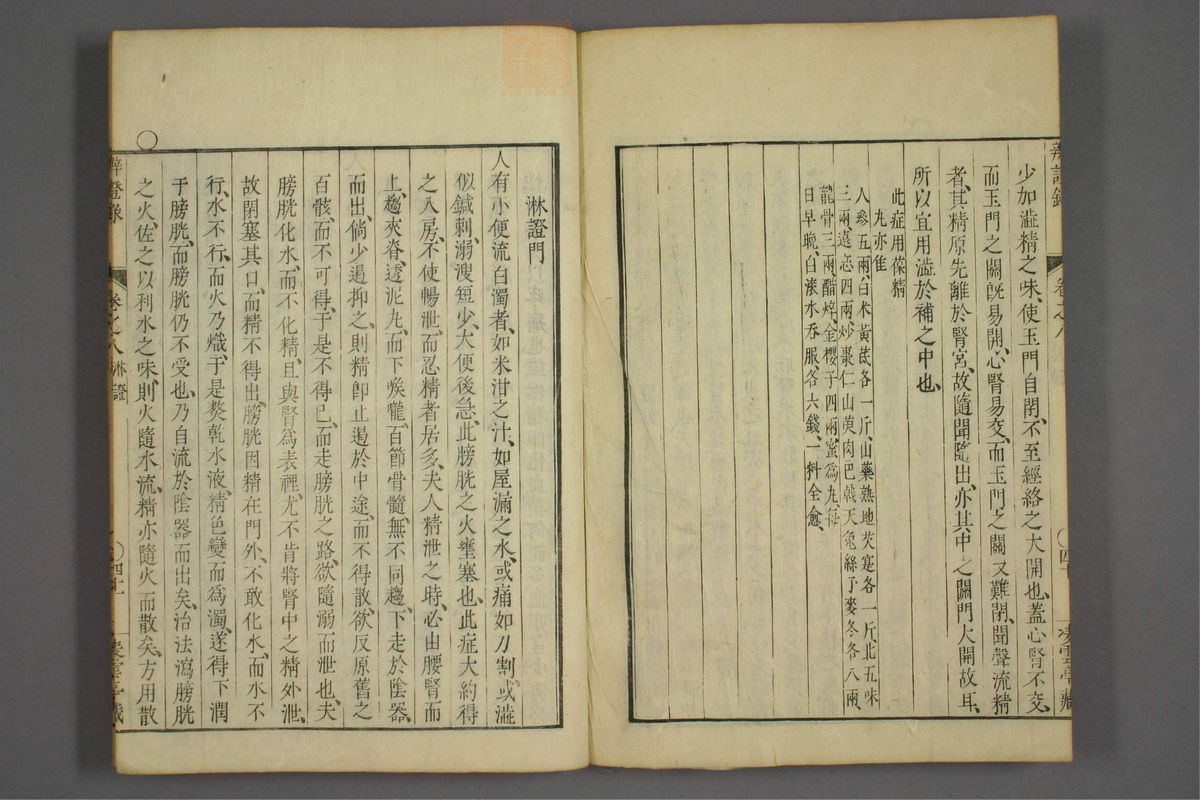 辨證錄
卷之八
少加澁精之味、使玉門自閉、不至經絡之大開也、蓋心腎不交、
而玉門之關旣易開、心腎易交、而玉門之關又難閉、聞聲流精
者、其精原先離於腎宮、故隨聞隨出、亦其中之關門大開故耳、
所以宜用澁於補之中也、
此症用葆精
丸亦佳
人參五兩、白术黃芪各一斤、山藥熟地芡寔各一斤、北五味
三兩、遠志四兩、炒棗仁山萸肉巴戟天兔絲子麥冬各八兩、
龍骨三兩、醋焠、金櫻子四兩、蜜爲丸、每
日早晚、白滚水吞服、各六錢、一料全愈、
凌雲亭藏
淋證門
人有小便流白濁者、如米泔之汁、如屋漏之水、或痛如刀割、或澁
似鍼刺、溺溲短少、大便後急、此膀胱之火壅塞也、此症大約得
之入房、不使暢泄、而忍精者居多、夫人精泄之時、必由腰腎而
上、趨夾脊、透泥丸、而下喉嚨、百節骨髓、無不同趨、下走於陰器、
而出、倘少遏抑之、則精卽止遏於中途、而不得散、欲反原舊之
百骸、而不可得、于是不得已、而走膀胱之路、欲隨溺而泄也、夫
膀胱化水、而不化精、且與腎爲表裡、尤不肯將腎中之精外泄、
故閉塞其口、而精不得出、膀胱因精在門外、不敢化水、而水不
行、水不行、而火乃熾、于是熬乾水液、精色變而爲濁、遂得下潤
于膀胱、而膀胱仍不受也、乃自流於陰器而出矣、治法瀉膀胱
之火、佐之以利水之味、則火隨水流、精亦隨火而散矣、方用散
辨證錄
卷之八 淋證
四十七
凌雲亭藏